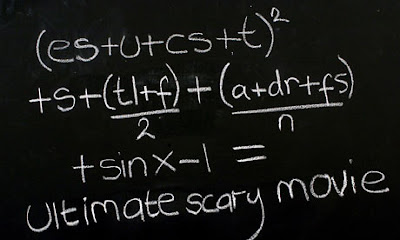 (es+u+cs+t)²
+s+(tl+f)/2+(a+dr+fs)/n
+sinx-1=
ultimate scary movie